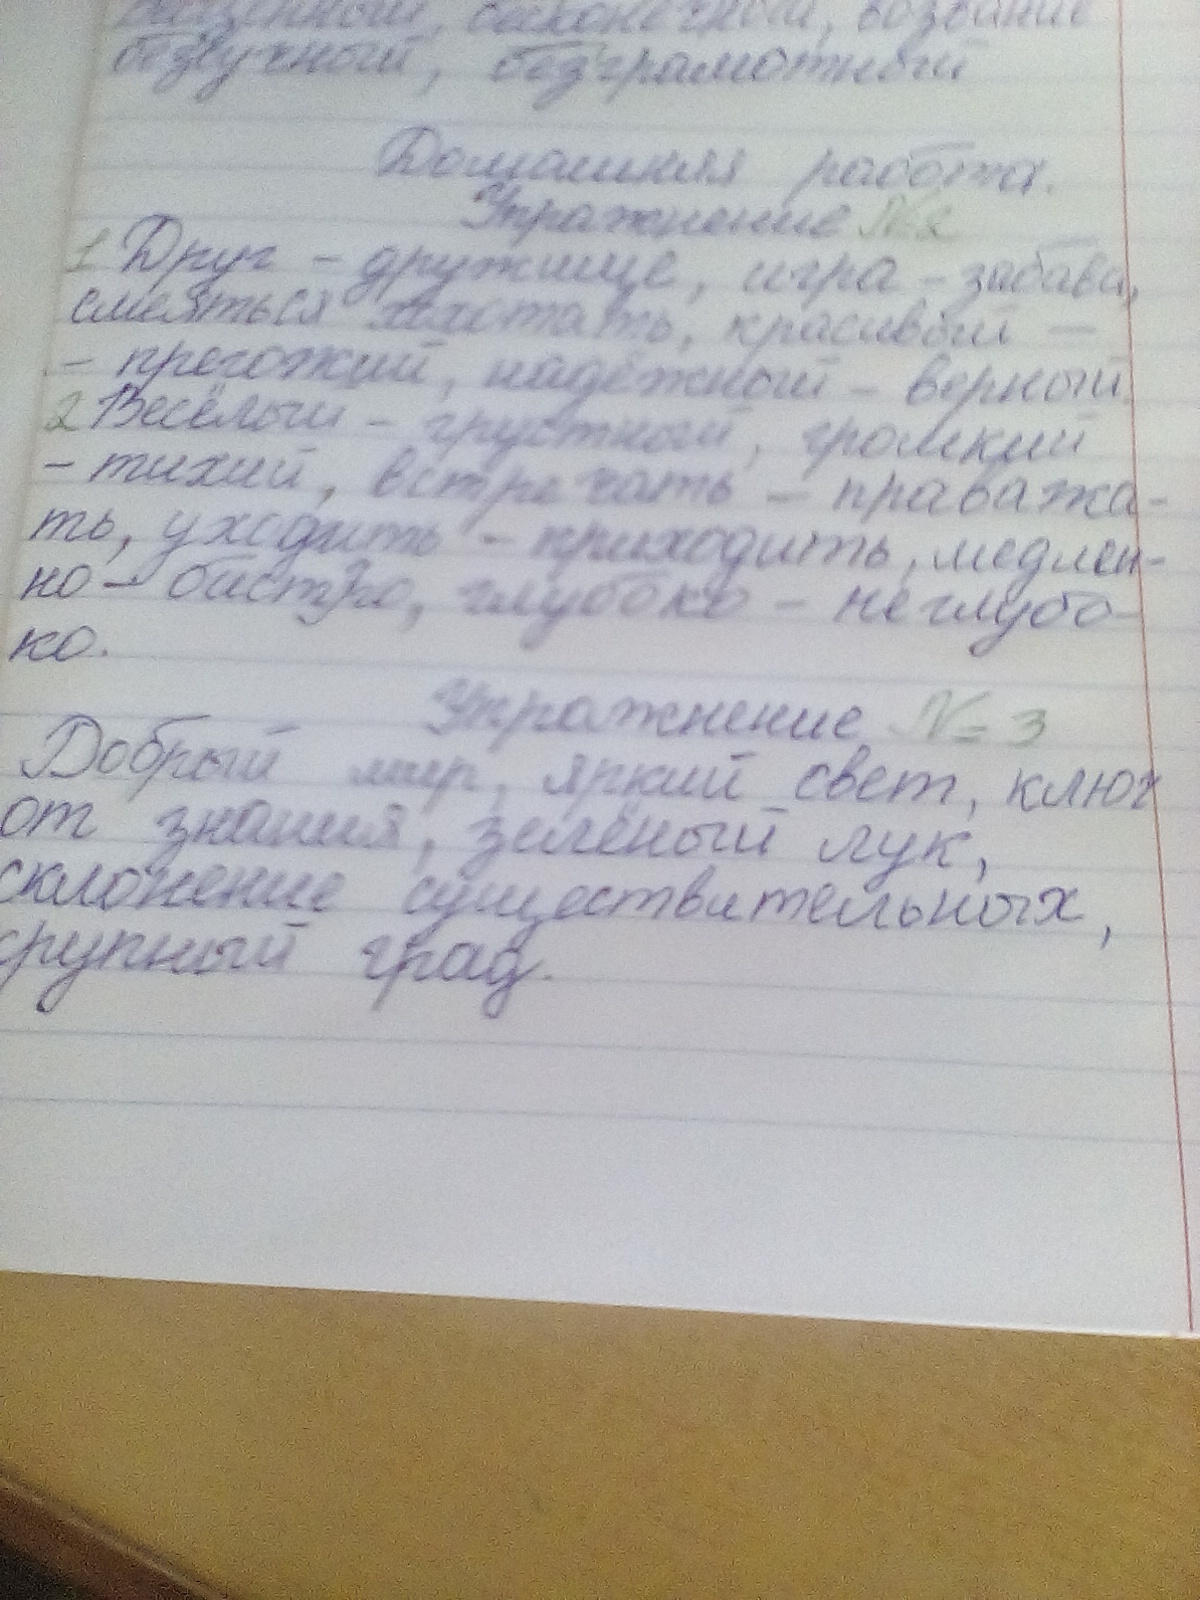 безвучный, безграмотный
Домашняя работа.
Упражнение №2
1 Друг - дружище, игра - забава,
смеяться хохотать, красивый -
- прегожий, надёжный - верный.
2 Весёлый - грустный, громкий
- тихий, встречать - праважа-
ть, уходить - приходить, медлен-
но - бистро, глубоко - неглубо-
ко.
Упражнение № 3
Добрый мир, яркий свет, ключ
от знания, зелёный лук,
склонение существительных,
крупный град.